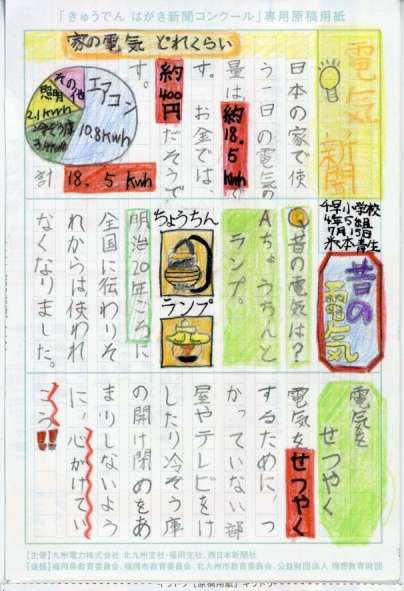 「きゅうでん はがき新聞コンクール」専用原稿用紙
電気新聞
家の電気 どれくらい
エアコン
10.8kwh
その他
照明
2.1kwh
冷ぞう庫
3.4kwh
計 18.5kwh
日本の家で使
う一日の電気の
量は、約18.5kwhで
す。お金では、
約400円だそうで
す。
千早小学校
4年5組
7月15日
昔の電気
昔の電気は?
Aちょうちんと
ランプ。
ちょうちん
ランプ
明治20年ごろに
全国に伝わりそ
れからは、使われ
なくなりました。
電気をせつやく
電気をせつやく
するために、つ
かっていない部
屋やテレビをけ
したり冷ぞう庫
の開け閉めをあ
まりしないよう
に、心がけてい
こう!!
【主催】九州電力株式会社 北九州支社・福岡支社、西日本新聞社
【後援】福岡県教育委員会、福岡市教育委員会、北九州市教育委員会、公益財団法人 理想教育財団